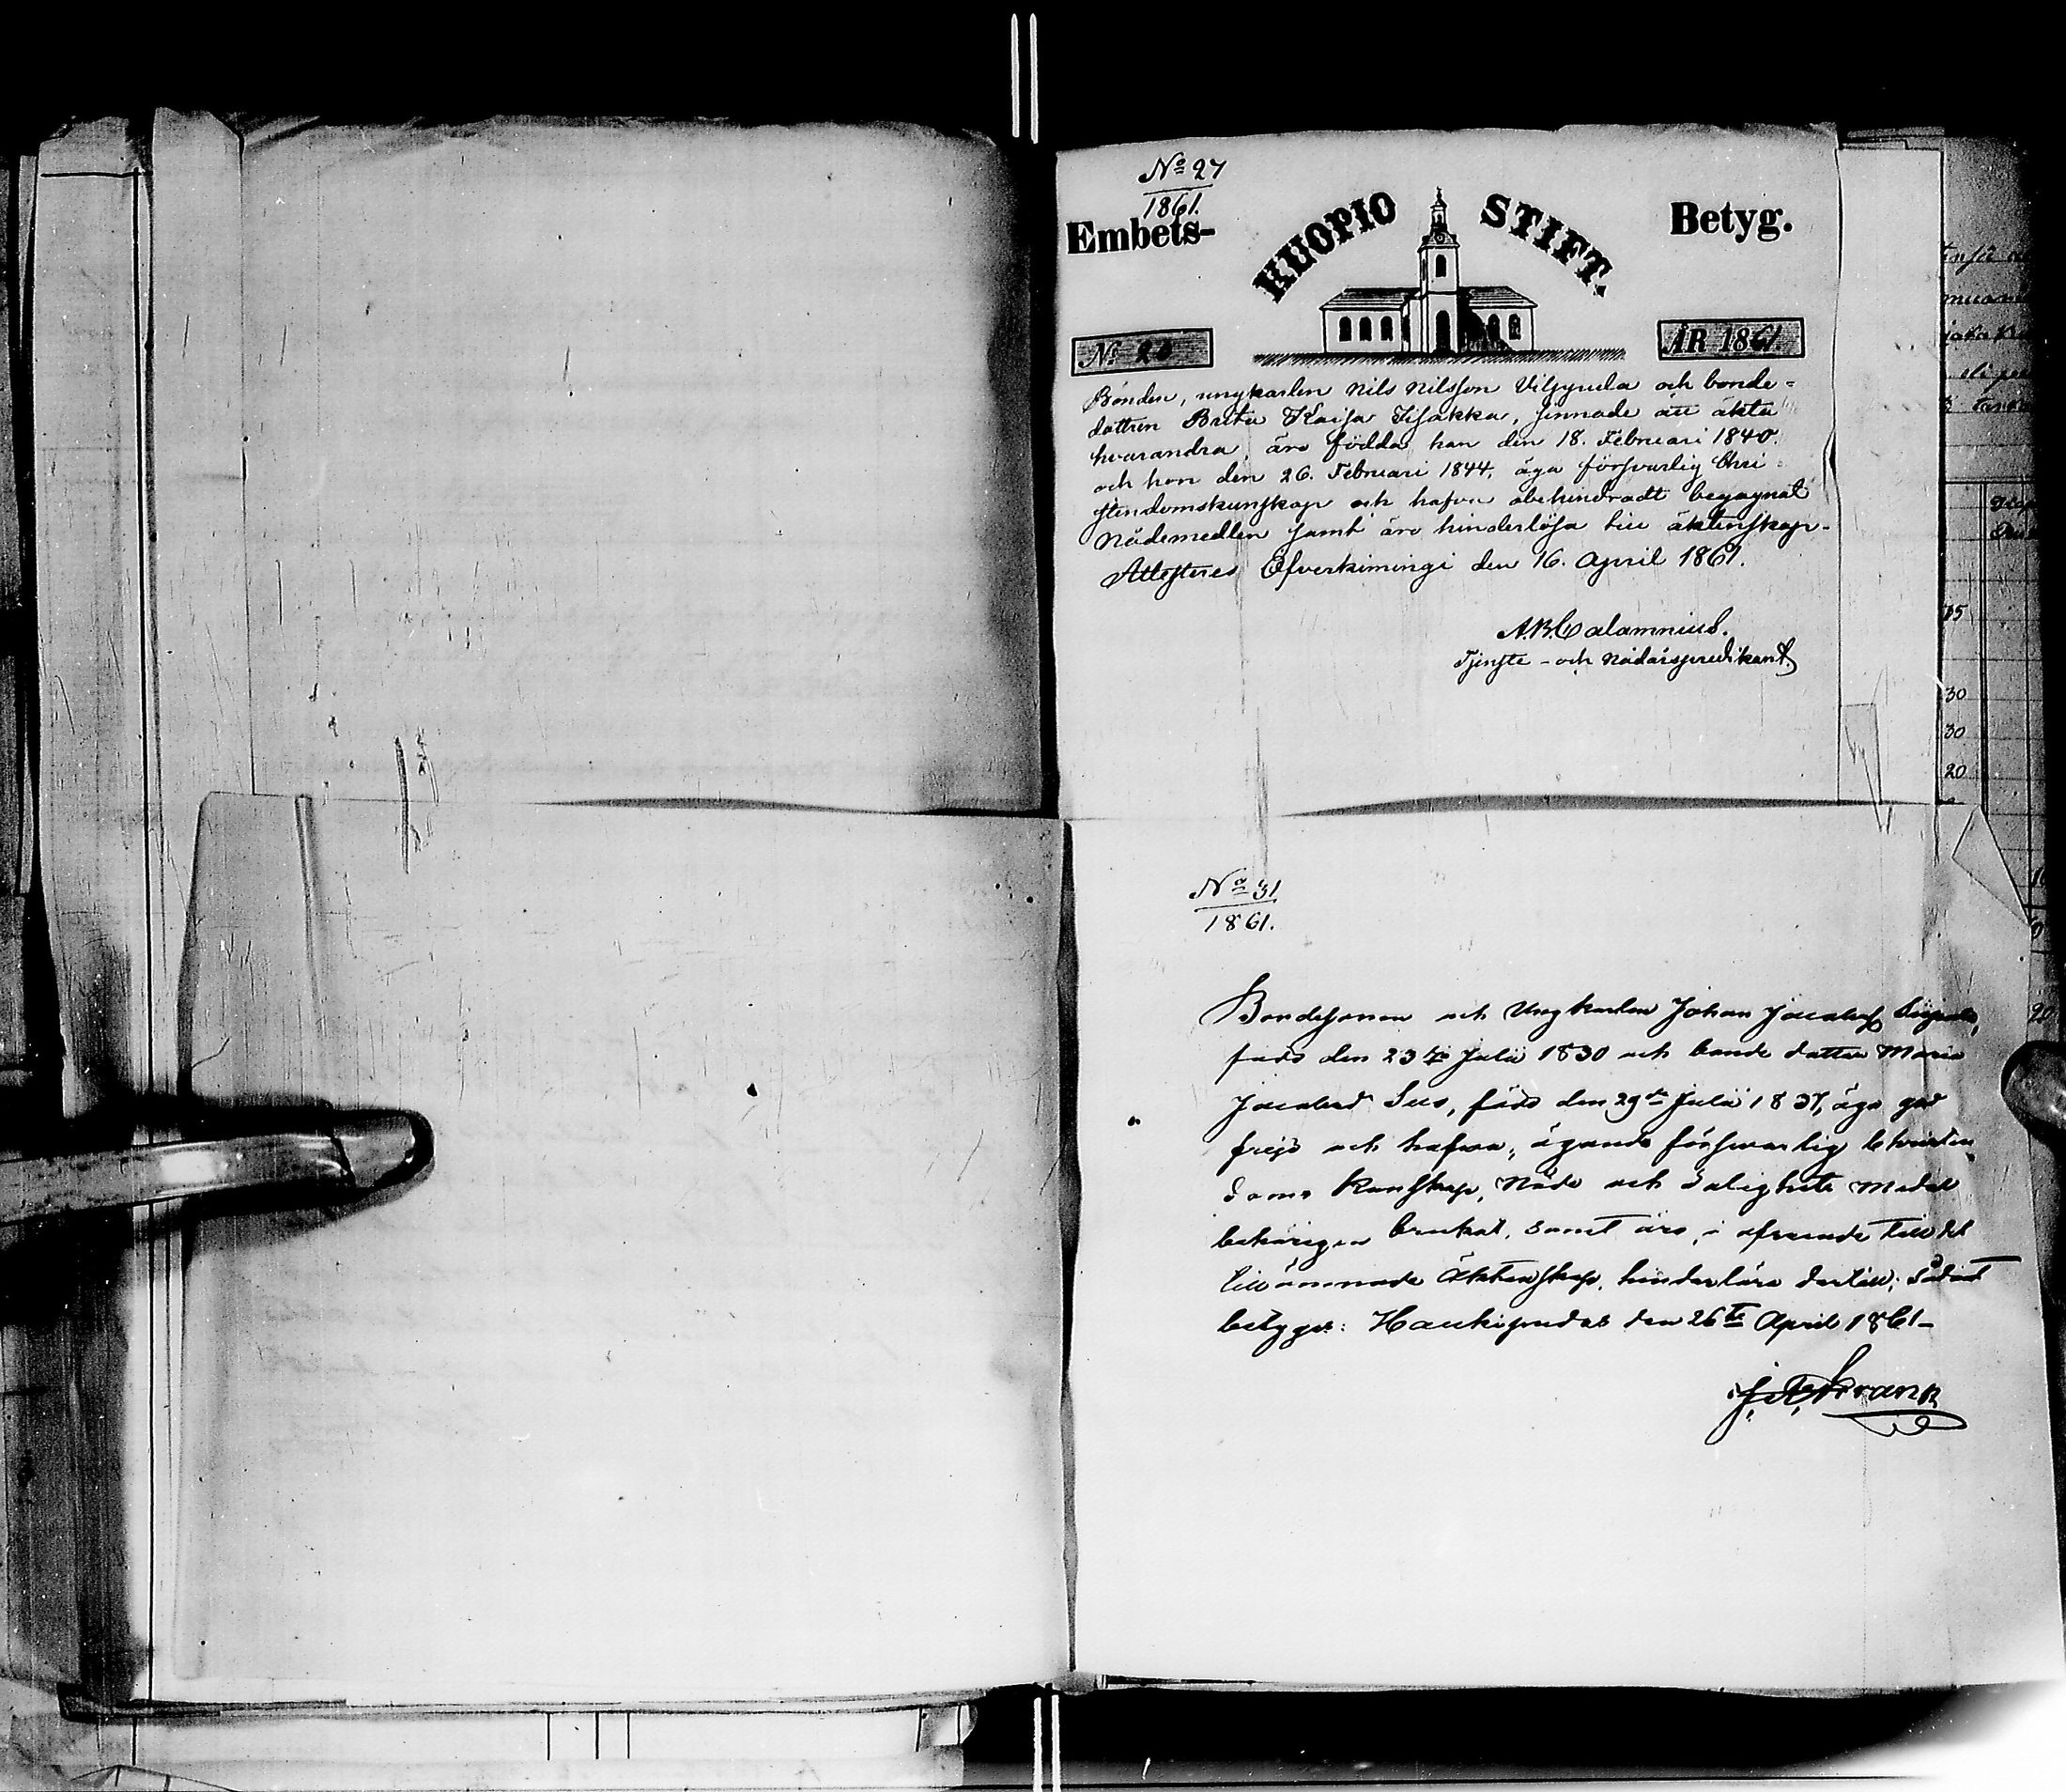 No 27
1861.
Embets-
KUOPIO STIFT.
Betyg.
No 20
ÅR 1861
Bonden, ungkarlen Nils Nilsson och bonde-
dottren Brita Kaisa ämnade att äkta
hvarandra, äro födda han den 18. Februari 1840.
och hon den 26. Februari 1844, äga försvarlig Chri-
stendomskunskap och hafva obehindradt begagnat
Nådemedlen samt äro hinderlösa till äktenskap.
Attesteras Öfverkimingi den 16. April 1861.
A.B. Calamnius.
Tjenste- och Nådårspredikant.
No 31
1861.
Bondesonen och Ungkarlen Johan Jacobss
född den 23 Julii 1830 och bonde dottren Maria
Jacobsd, född den 29de Julii 1837, äga god
frejd och hafva, ägande försvarlig Christen
doms kunskap, Nåde och Salighets Medel
behörigen brukat, samt äro, i afseende till det
tillämnade Äktenskap, hinderlösa dertill; Sådant
betygas: Haukipudas den 26te April 1861-